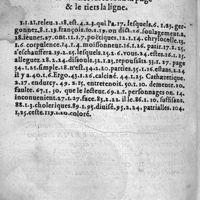 & le tiers la ligne.
1.1.12. releu. 1.18. est. 4.2.3. qui l'a. 17. lesquels. 6.1.23. ger-
gonner. 8.1.19. françois. 10.1.19. ou dis. 1.16. soulagement. 2.
18. ieunet. 27. ont. 11.17. poëtiques. 12.1.24. chrysocelle. 13.
1.6. corpulence. 14.1.4. moissonneur. 16.1.16. patir. 17.1.15.
s'eschauffera. 19.2.15. lesquels. 25.1.6. vous. 24. estes. 26.1.25.
alleguez. 28.2.24. disoudis. 31.1.23. repoussist. 33.1.27. page
34.1.25. simple. 18. n'est. 34.2.10. parties. 35.1.26. estans. 1.24.
il y a 40.1.6. Ergo. 43.1.26. calciné. 44.1.25. Cathæretique.
1.27. endurcy. 49.2.25. entretenoit. 50.1.10. demeure. 20.
faulte. 67.1.30. que le lecteur. 69.2.1. personnages on 14.
inconuenient. 27.1.27. face. 83.2.22. il ie. 86.1.10. suffisant.
88.1.3. choleriques. 89.1.5. diuisé. 93.2.24. patriailes. 104.
1.25. ceste. 119.1.20. coloré.